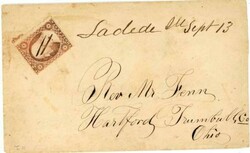 Ladede Ills Sept 13
Rev Mr Fenn
Hartford Trumbull Co
Ohio